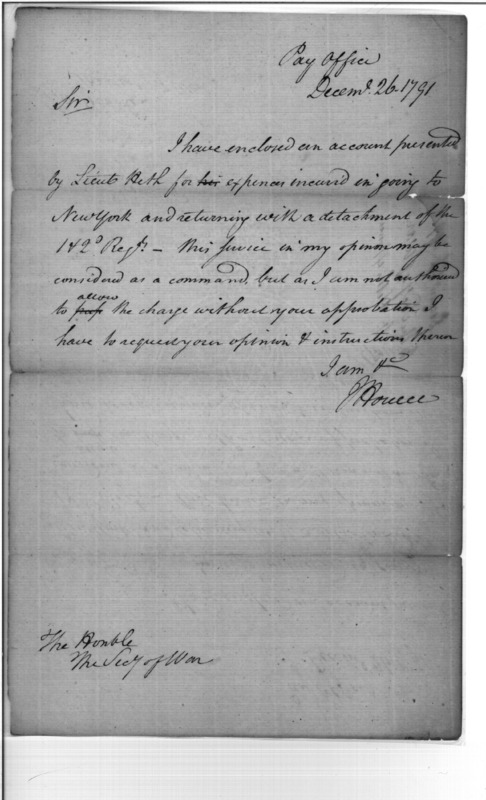 Pay Office
Decemr. 26. 1791
Sir
I have enclosed an account presented
by Lieut. Heth for his expences incured in going to
New York and returning with a detachment of the
1 & 2d Regts. – this service in my opinon may be
considered as a command, but as I am not authorised
allow
to pass the charge without your approbation I
have to request your opinion & instructions theron
I am &c
J Howell
The Honble
The Secy of War